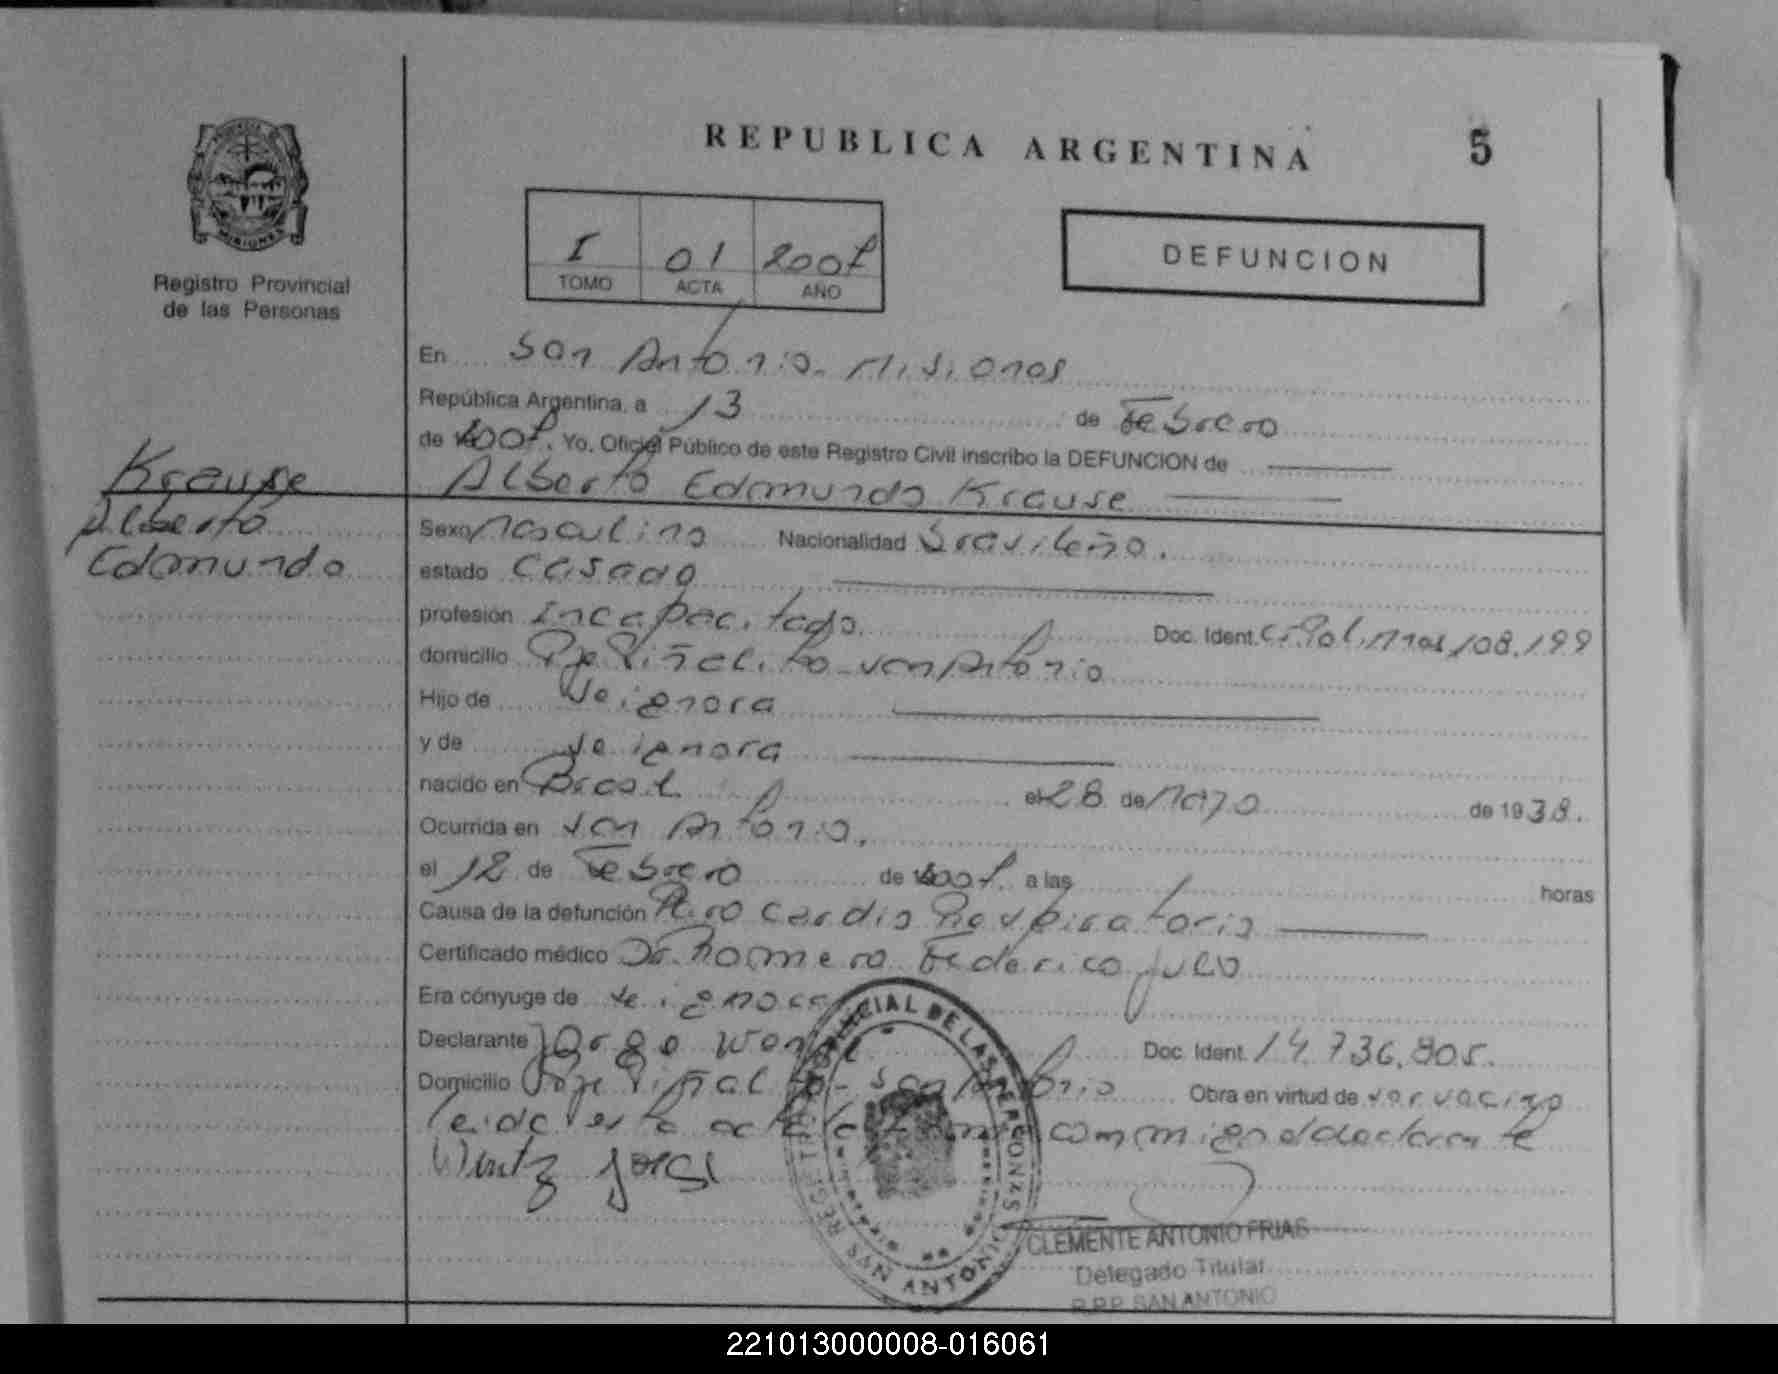 REPUBLICA ARGENTINA 5
PROVINCIA DE
MISIONES
Registro Provincial
de las Personas
I 01 2007
TOMO ACTA AÑO
DEFUNCION
En San Antonio. Misiones
República Argentina, a 13 de Febrero
de 2007. Yo, Oficial Público de este Registro Civil inscribo la DEFUNCION de
Alberto Edmundo Krause
Krause
Alberto
Edmundo
Sexo Masculino Nacionalidad Brasileño.
estado Casado
profesión Incapacitado Doc. Ident. C. Pol. Mnes 108.199
domicilio Pje Piñalito San Antonio
Hijo de Se ignora
y de Se ignora
nacido en Brasil el 28 de Mayo de 1938.
Ocurrida en San Antonio.
el 12 de Febrero de 2007 a las horas
Causa de la defunción Paro Cardio Respiratorio
Certificado médico Dr. Romero Federico Julio
Era cónyuge de se ignora
Declarante Jorge Wentz Doc. Ident. 14.736.905.
Domicilio Pje Piñalito - San Antonio Obra en virtud de ser vecino
leida esta acta la firma conmigo el declarante
Wentz Jorge
REGISTRO PROVINCIAL DE LAS PERSONAS
SAN ANTONIO
CLEMENTE ANTONIO FRIAS
Delegado Titular
R.P.P. SAN ANTONIO
221013000008-016061